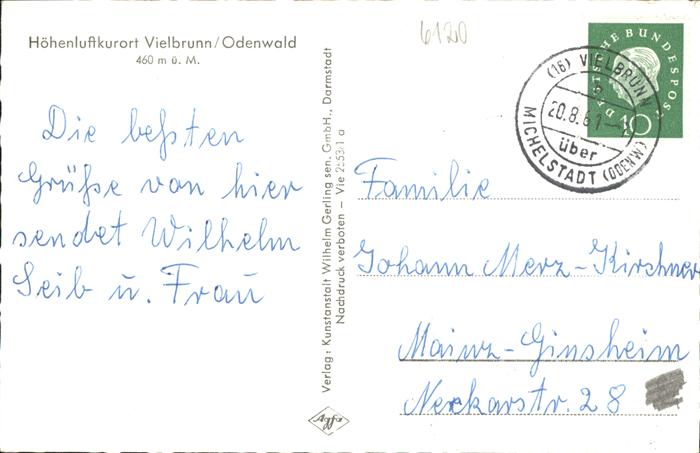 Höhenluftkurort Vielbrunn/Odenwald
460 m ü. M.
Die beßten
Grüße von hier
sendet Wilhelm
Seib u. Frau
Verlag: Kunstanstalt Wilhelm Gerling sen. GmbH., Darmstadt
Nachdruck verboten – Vie 2553/1 a
Agfa
6120
DEUTSCHE BUNDESPOST
10
(16) VIELBRUNN
b
20.8.61
über
MICHELSTADT (ODENW)
Familie
Johann Merz-Kirschner
Mainz-Ginsheim
Neckarstr. 28